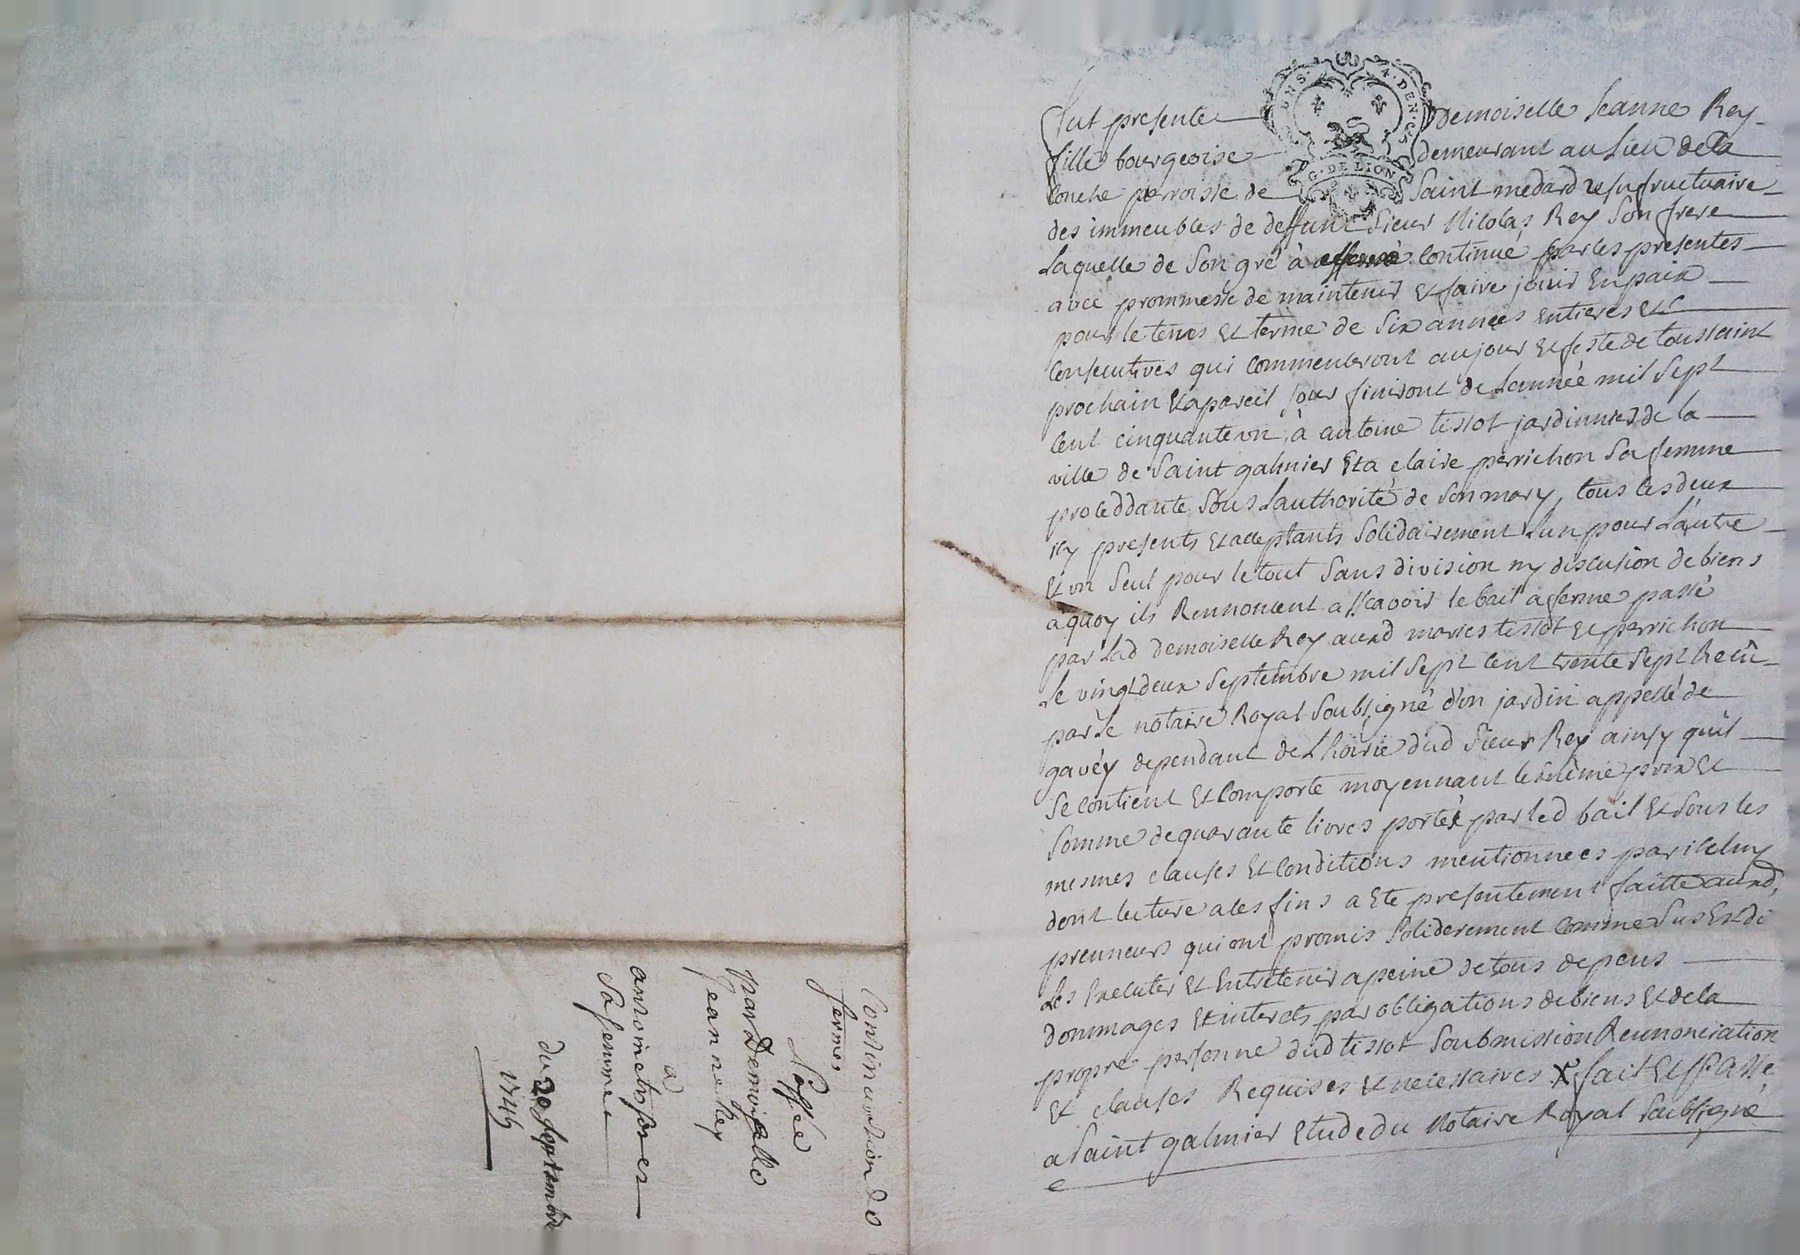 Fut presente Demoiselle Jeanne Rey
fille bourgeoise demeurant au Lieu de la
Conche parroisse de Saint medard usufructuaire
des immeubles de deffunt Sieur Nicolas Rey Son frere
Laquelle de Son gré à continué par les presentes
avec prommesse de maintenir et faire jouir En paix
pour le tems et terme de Six années Entieres et
Consecutives qui Commenceront au jour et feste de toussaint
prochain Et a pareil jour finiront de Lannée mil Sept
Cent cinquante un, à antoine tissot jardinnier de la
ville de Saint galmier Et a claire perrichon Sa femme
proceddante Sous Lauthorité de Son mary, tous les deux
icy presents et acceptants Solidairement Lun pour Lautre
et un Seul pour le tout Sans division ny discution de biens
a quoy ils Rennoncent assçavoir le bail a ferme passé
par Lad demoiselle Rey auxd mariés tissot et perrichon
Le vingt deux Septembre mil Sept Cent trente Sept Recû
par Le notaire Royal Soubsigné d'un jardin appellé de
gavéy dependant de Lhoirie dud Sieur Rey ainsy qu'il
Se contient et Comporte moyennant le même prix et
Somme de quarante livres portéx par led bail et Sous les
mesmes clauses et Conditions mentionnees par iceluy
dont lecture a ces fins a Ete presentement faitte auxd,
prenneurs qui ont promis Soliderement Comme Sus Est di
Les Executer et Entretenir a peine de tous depens
dommages et interets par obligations de biens et de la
propre personne dud tissot Soubmission Rennonciation
et clauses Requises et necessaires X fait et passé
a Saint galmier Etude du Notaire Royal Soubsigné
G. DE LION
Continuation de
ferme
par Demoiselle
jeanne Rey
a
antoine tissot et
Sa femme
du 20 septembre
1745